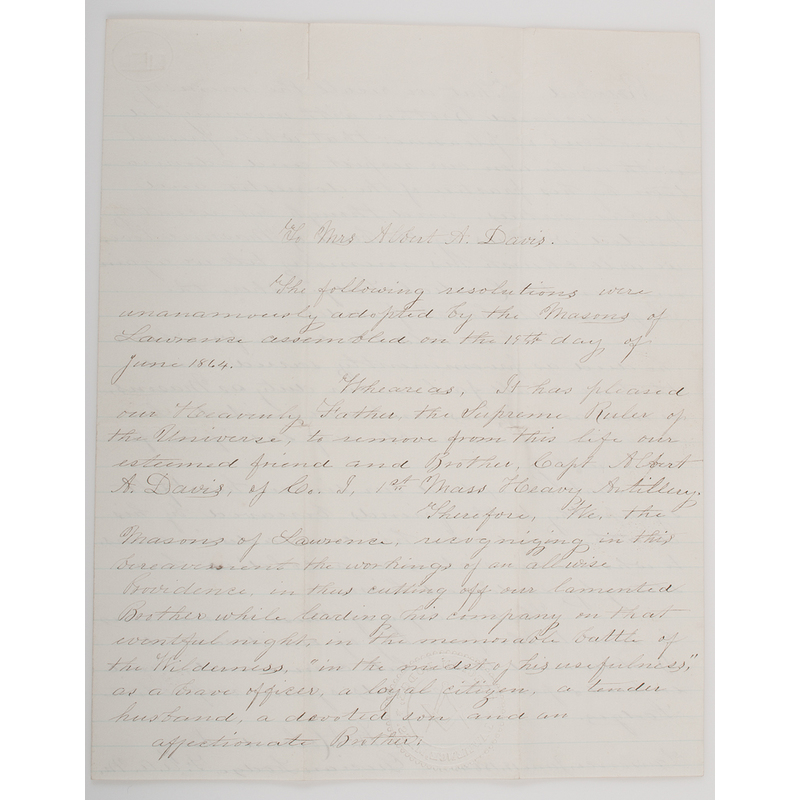 To Mrs Albert A. Davis.
The following resolutions were
unanamously adopted by the Masons of
Lawrence assembled on the 19th day of
June 1864.
Wheareas, It has pleased
our Heavenly Father, the Supreme Ruler of
the Universe, to remove from this life our
esteemed friend and Brother, Capt Albert
A. Davis, of Co. I, 1st Mass Heavy Artillery.
Therefore, We, the
Masons of Lawrence, recognizing in this
bereavement the workings of an allwise
Providence, in thus cutting off our lamented
Brother while leading his company on that
eventful night, in the memorable battle of
the Wilderness, "in the midst of his usefulness,"
as a brave officer, a loyal citizen, a tender
husband, a devoted son and an
affectionate Brother,